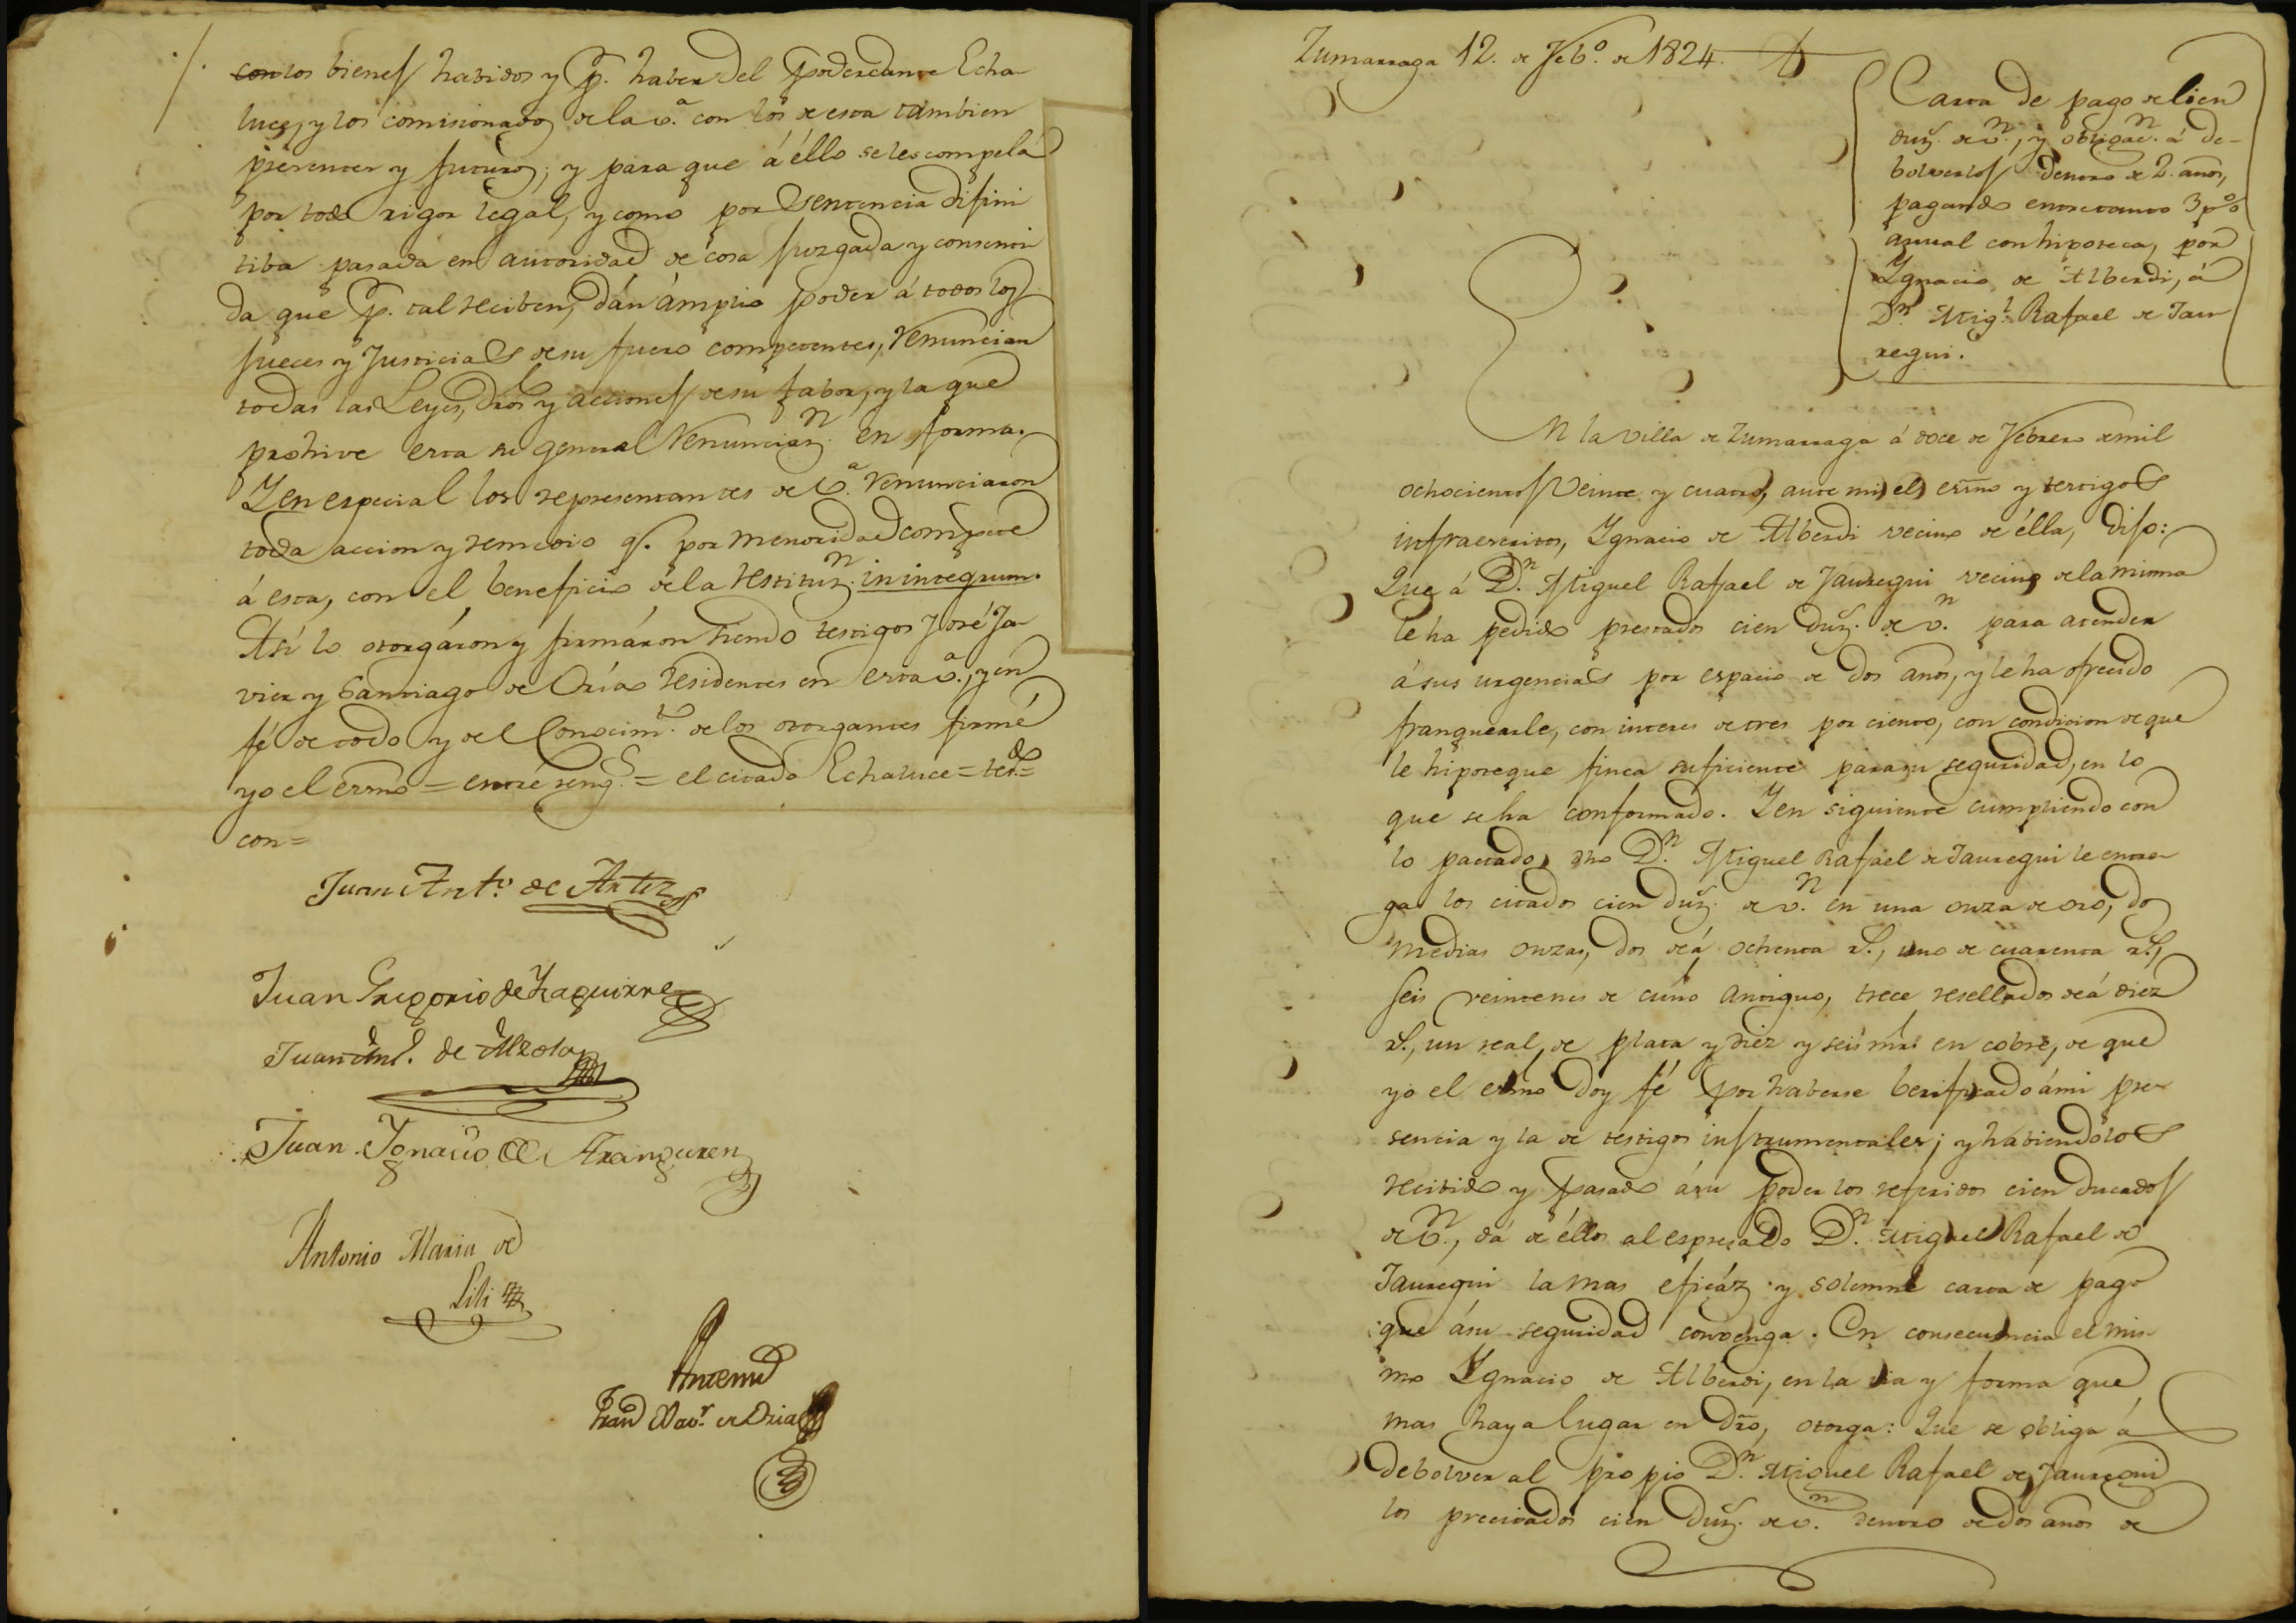 con los bienes habidos y p. haber del poderdante Echa
luce, y los comisionados de la v.ª con los de esta tambien
presentes y futuros; y para que á éllo se les compela
por todo rigor legal, y como por Sentencia difini
tiba pasada en autoridad de cosa juzgada y consenti
da que p. tal reciben, dán ámplio poder á todos los
jueces y Justicias de su fuero competentes, renuncian
todas las Leyes, dros y acciones de su fabor, y la que
prohive esta su general renunciaz.n en forma.
Y en especial los representantes de v.ª renunciaron
toda accion y remedio q. por menoridad compete
á esta, con el beneficio de la restituz.n in integrum.
Así lo otorgáron y firmáron siendo testigos José Ja-
vier y Santiago de Oria residentes en esta v.ª, y en
fé de todo y del Conocim.to de los otorgantes firmé
yo el essno = entre reng.s = el citado Echaluce = test.do =
con =
Juan Ant.o de Artiz
Juan Gregorio de Yzaguirre
Juan Ant. de Alzola
Juan Ygnacio de Aranguren
Antonio Maria de
Lili
Antemi
Fran.co Xav.r de Oria
Zumarraga 12. de Feb.o de 1824.
Carta de pago de cien
duz. de v.n, y obligac.n á de-
bolverlos dentro de 2. años,
pagando entretanto 3 p%
anual con hipoteca, por
Ygnacio de Alberdi, á
D.n Mig.l Rafael de Jau
regui.
En la villa de Zumarraga á doce de Febrero de mil
ochocientos Veinte y cuatro, ante mi el esrno y testigos
infraescritos, Ygnacio de Alberdi vecino de élla, Dijo:
Que á D.n Miguel Rafael de Jauregui vecino de la misma
le ha pedido prestados cien duz. de v.n para atender
á sus urgencias por espacio de dos años, y le ha ofrecido
franquearle, con interes de tres por ciento, con condicion de que
le hipoteque finca suficiente para su seguridad, en lo
que se ha conformado. Y en siguiente cumpliendo con
lo pactado, dho D.n Miguel Rafael de Jauregui le entre-
ga los citados cien duz. de v.n en una onza de oro, dos
medias onzas, dos de á ochenta r.s, uno de cuarenta r.s,
seis veintenes de cuño antiguo, trece resellados de á diez
r.s, un real de plata y diez y seis mrs en cobre, de que
yo el esrno doy fé por haberse berificado á mi pre-
sencia y la de testigos instrumentales; y habiendolos
recibido y pasado á su poder los referidos cien ducados
de v.n, dá de éllos al espresado D.n Miguel Rafael de
Jauregui la mas eficáz y solemne carta de pago
que á su seguridad convenga. En consecuencia el mis-
mo Ygnacio de Alberdi, en la via y forma que
mas haya lugar en dro, otorga: Que se obliga á
debolver al propio D.n Miguel Rafael de Jauregui
los precitados cien duz. de v.n dentro de dos años de